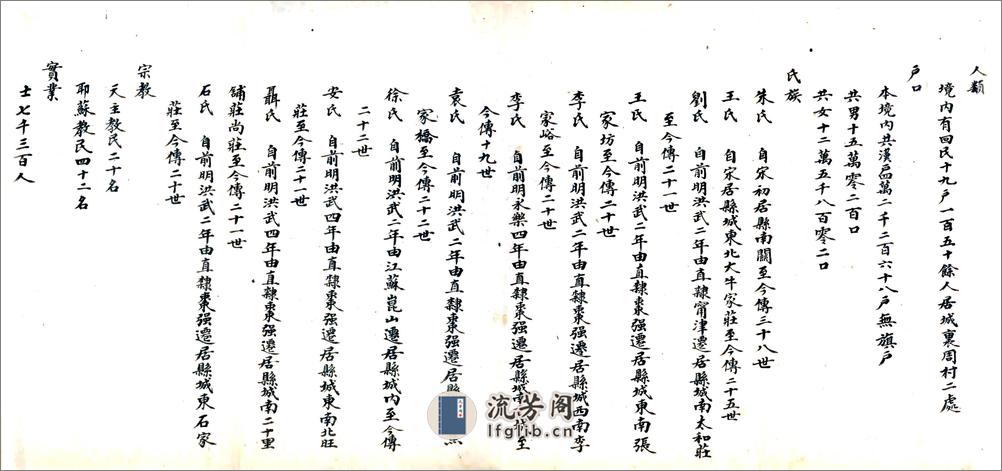 人類
境内有回民十九户一百五十餘人居城裏周村二處
户口
本境内共漢户四萬二千二百六十八户無旗户
共男十五萬零二百口
共女十二萬五千八百零二口
氏族
朱氏 自宋初居縣南關至今傳三十八世
王氏 自宋居縣城東北大牛家莊至今傳二十五世
劉氏 自前明洪武二年由直隸甯津遷居縣城南太和莊
至今傳二十一世
王氏 自前明洪武二年由直隸棗强遷居縣城東南張
家坊至今傳二十世
李氏 自前明洪武二年由直隸棗强遷居縣城西南李
家峪至今傳二十世
李氏 自前明永樂四年由直隸棗强遷居縣城南 至
今傳十九世
袁氏 自前明洪武二年由直隸棗强遷居
家橋至今傳二十二世
徐氏 自前明洪武二年由江蘇崑山遷居縣城内至今傳
二十二世
安氏 自前明洪武四年由直隸棗强遷居縣城東南北旺
莊至今傳二十一世
聶氏 自前明洪武四年由直隸棗强遷居縣城南二十里
舖莊尚莊至今傳二十一世
石氏 自前明洪武二年由直隸棗强遷居縣城東石家
莊至今傳二十世
宗教
天主教民二十名
耶蘇教民四十二名
實業
士七千三百人
流芳阁
lfglib.cn